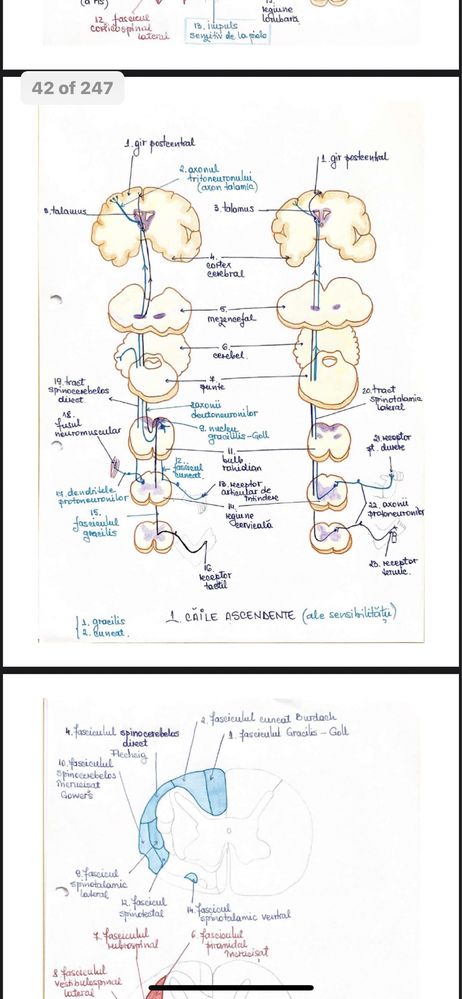 12. fascicul
corticospinal
lateral
13. impuls
senzitiv de la piele
regiune
lombară
42 of 247
1. gir postcentral
2. axonul
tritoneuronului
(axon talamic)
3. talamus
1. gir postcentral
3. talamus
4.
cortex
cerebral
5.
mezencefal
6.
cerebel.
7.
punte
19. tract
spinocerebelos
direct
20. tract
spinotalamic
lateral
axonii
deutoneuronilor
9. nucleu
gracilis-Goll
18.
fusul
neuromuscular
11.
bulb
rahidian
21. receptor
pt. durere
12.
fascicul
cuneat.
17. dendritele
protoneuronilor
13. receptor
articular de
mindere
14.
regiune
cervicală
22. axonii
protoneuronilor
15.
fasciculul
gracilis
16.
receptor
tactil
23. receptor
termic.
1. gracilis
2. cuneat.
1. CĂILE ASCENDENTE (ale sensibilității)
2. fasciculul cuneat Burdach
1. fasciculul Gracilis - Goll
4. fasciculul spinocerebelos
direct
Flechsig
10. fasciculul
spinocerebelos
încrucișat
Gowers
9. fascicul
spinotalamic
lateral
12. fascicul
spinotectal
14. fascicul
spinotalamic ventral
7. fasciculul
rubrospinal
6. fasciculul
piramidal
încrucișat
8. fasciculul
vestibulospinal
lateral